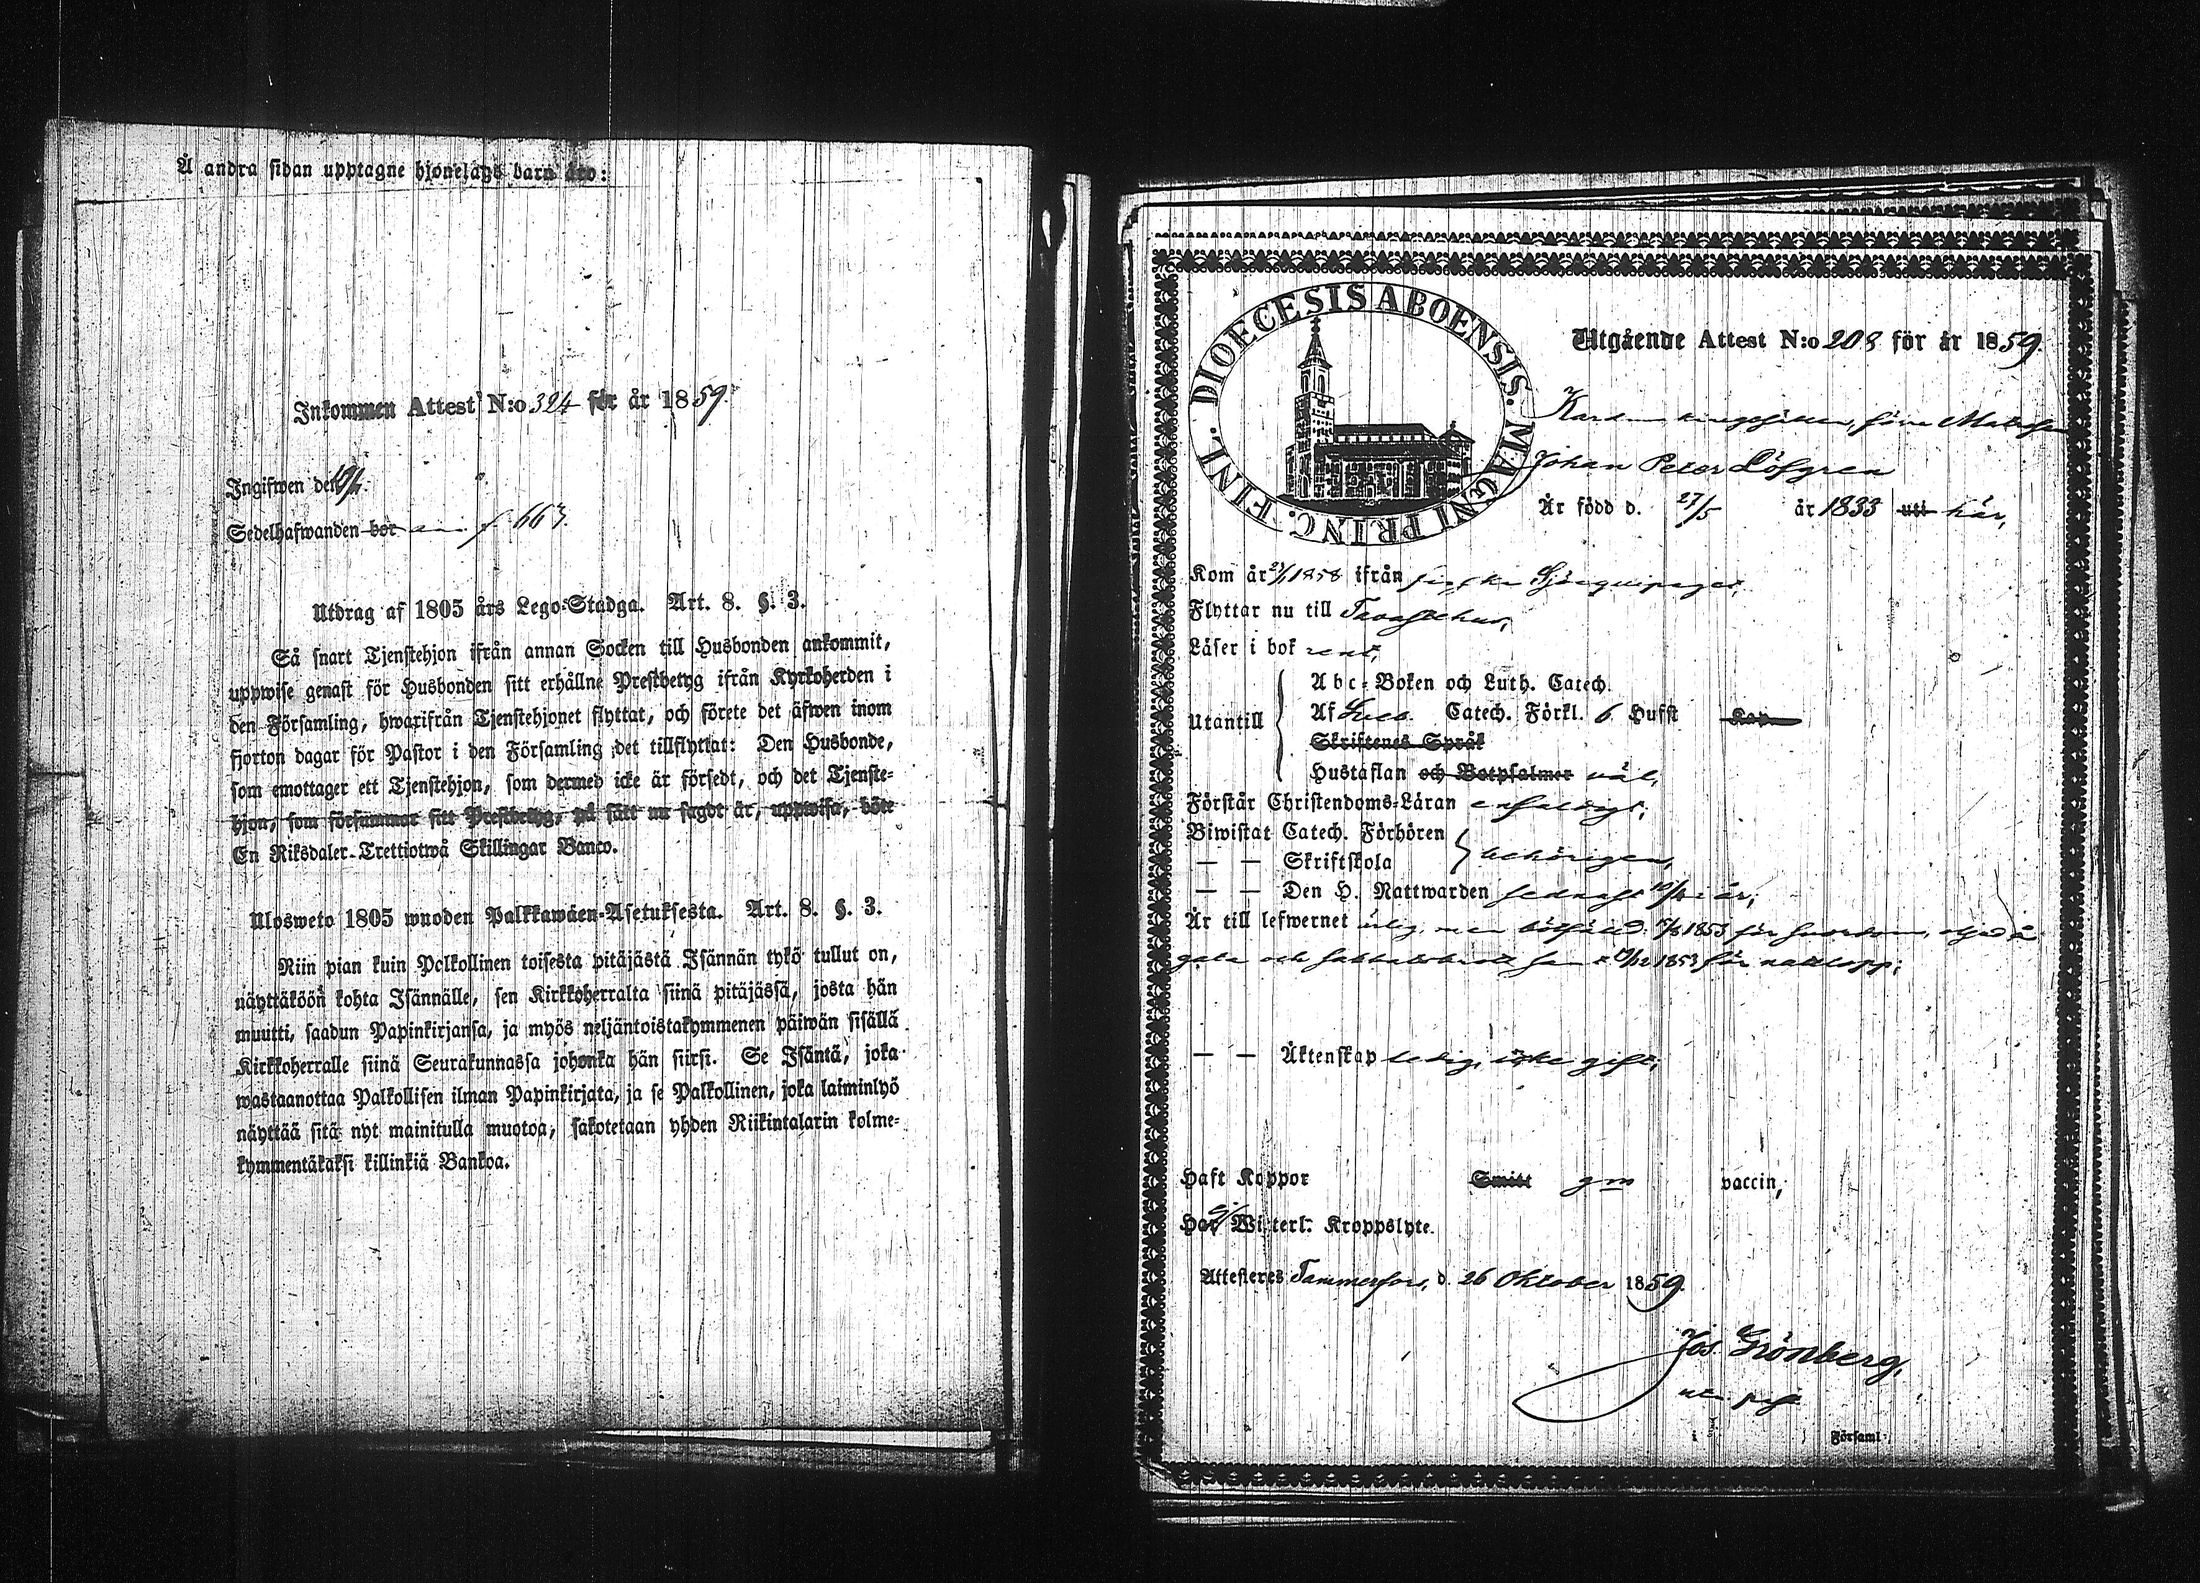 Å andra sidan upptagne hjonelags barn äro:
Inkommen Attest N:o 324 för år 1859.
Ingifwen den
Sedelhafwanden bör f. 663.
Utdrag af 1805 års Lego-Stadga. Art. 8. §. 3.
Så snart Tjenstehjon ifrån annan Socken till Husbonden ankommit,
uppwise genast för Husbonden sitt erhållne Prestbetyg ifrån Kyrkoherden i
den Församling, hwarifrån Tjenstehjonet flyttat, och förete det äfwen inom
fjorton dagar för Pastor i den Församling det tillflyttat: Den Husbonde,
som emottager ett Tjenstehjon, som dermed icke är försedt, och det Tjenste-
hjon, som försummar sitt Prestbetyg, på sätt nu sagdt är, uppwisa, böte
En Riksdaler Trettiotwå Skillingar Banco.
Ulosweto 1805 wuoden Palkkawäen-Asetuksesta. Art. 8. §. 3.
Niin pian kuin Palkollinen toisesta pitäjästä Isännän tykö tullut on,
näyttäköön kohta Isännälle, sen Kirkkoherralta siinä pitäjässä, josta hän
muutti, saadun Papinkirjansa, ja myös neljäntoistakymmenen päiwän sisällä
Kirkkoherralle siinä Seurakunnassa johonka hän siirsi. Se Isäntä, joka
wastaanottaa Palkollisen ilman Papinkirjata, ja se Palkollinen, joka laiminlyö
näyttää sitä nyt mainitulla muotoa, sakotetaan yhden Riikintalarin kolme-
kymmentäkaksi killinkiä Bankoa.
DIOECESIS ABOENSIS. MAGNI PRINC. FINL.
Utgående Attest N:o 208 för år 1859.
Johan Peter Löfgren
Är född d. 27/5 år 1833 uti här,
Kom år 1858 ifrån Sjöequipaget,
Flyttar nu till Tavastehus,
Läser i bok rent,
Utantill
Abc-Boken och Luth. Catech.
Af Sveb. Catech. Förkl. 6 Hufst Kap.
Skriftenes Språk
Hustaflan och Botpsalmer väl,
Förstår Christendoms-Läran enfaldigt,
Biwistat Catech. Förhören
— — Skriftskola behörigen,
— — Den H. Nattwarden sednast i år,
Är till lefwernet ärlig, men 1853 för
och 1853 för
— — Äktenskap ledig, icke gift,
Haft Koppor Smitt gm vaccin,
Har Witterl. Kroppslyte.
Attesteres Tammerfors, d. 26 Oktober 1859.
Jos. Grönberg,
i Församl.